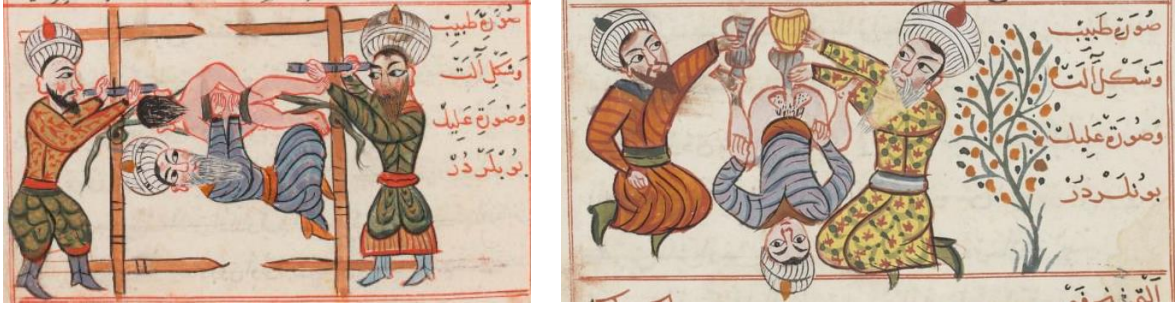 صورة طبيب
وشكل آلت
وصورة عليل
بونلردر
صورة طبيب
وشكل آلت
وصورة عليل
بونلردر